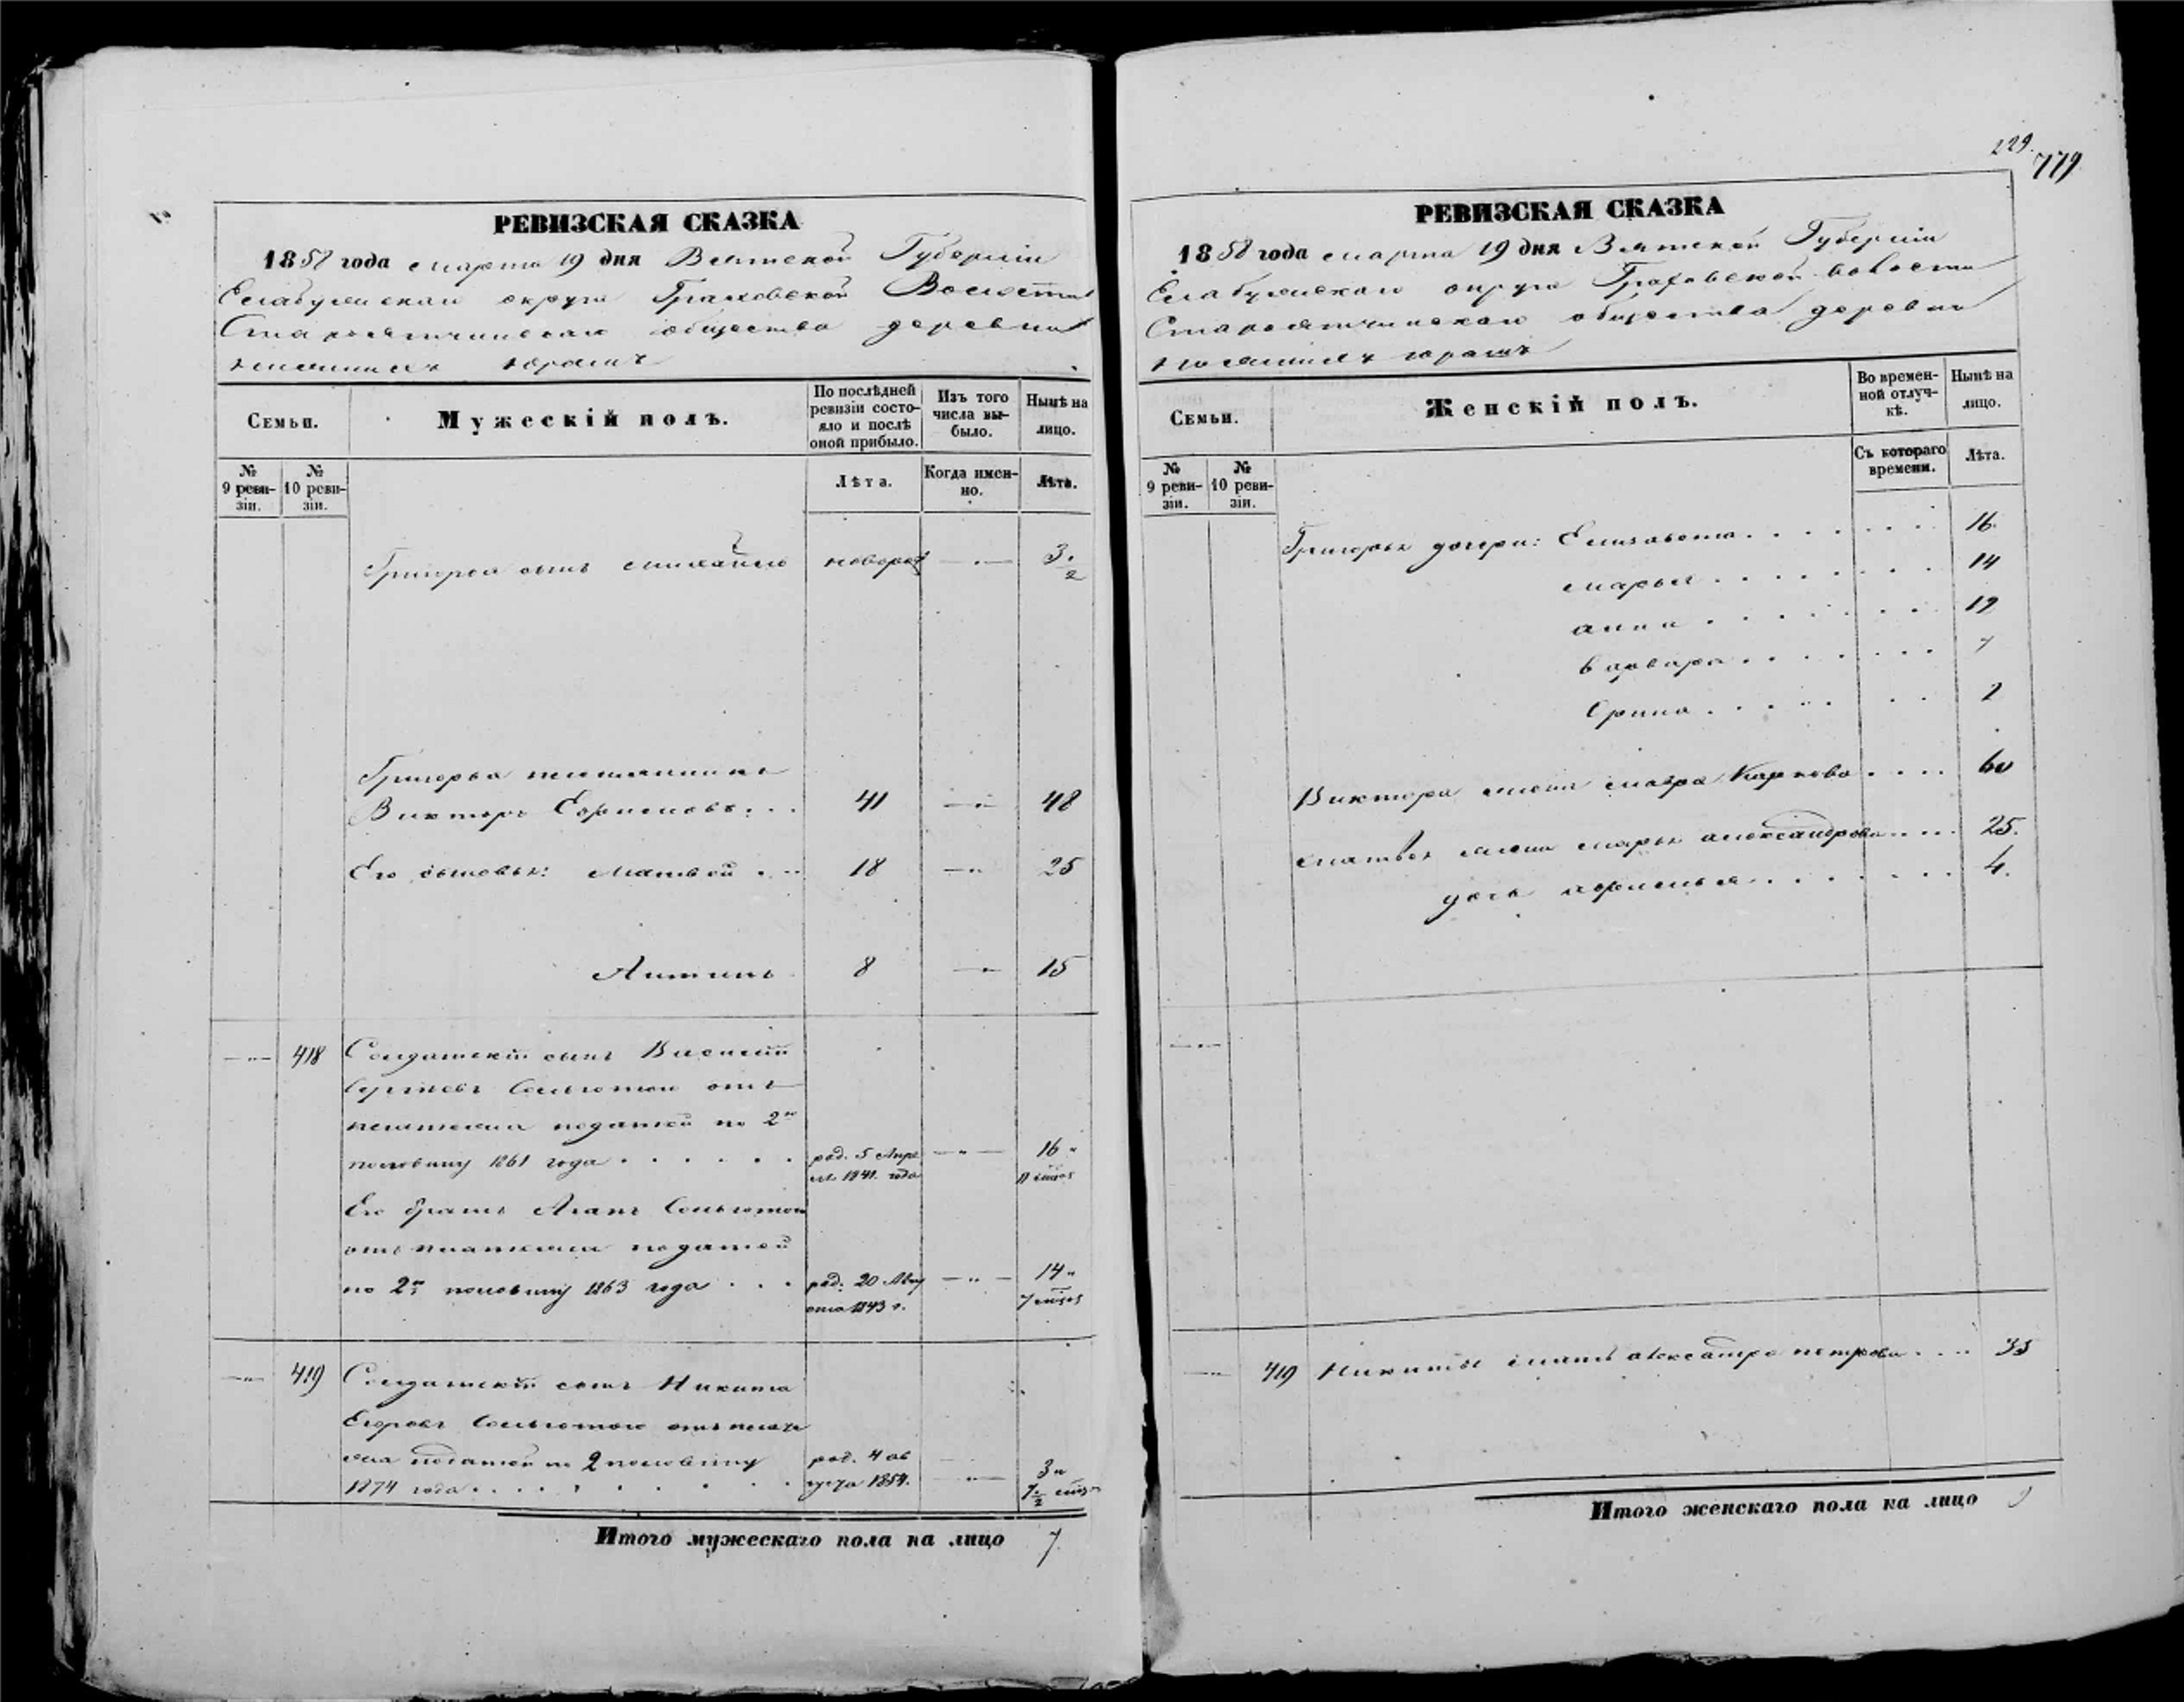 РЕВИЗСКАЯ СКАЗКА
1858 года марта 19 дня Вятской Губерніи
Елабужскаго округа Граховской Волости
Старо общества деревни
Юраш
Семьи.
Мужескій полъ.
По послѣдней ревизіи состояло и послѣ оной прибыло.
Изъ того числа выбыло.
Нынѣ на лицо.
№ 9 ревизіи.
№ 10 ревизіи.
Лѣта.
Когда именно.
Лѣта.
Григорья сынъ Михайло новорож —"— 3 1/2
Григорья племянникъ
Викторъ Ефремовъ 41 —"— 48
Его сыновья: Матвей 18 —"— 25
Антипъ 8 —"— 15
—"— 418 Солдатскій сынъ Василій
Сергѣевъ Сльготою отъ
платежа податей по 2ю
половину 1861 года род. 5 Апреля 1841. года —"— 16 " 11 мцов
Его братъ Агапъ Сльготою
отъ платежа податей
по 2ю половину 1863 года род. 20 Августа 1843 г. —"— 14 " 7 мцов
—"— 419 Солдатскій сынъ Никита
Егоровъ Сльготою отъ плате
жа податей по 2 половину
1874 года род. 4 августа 1854. —"— 3 " 7 1/2 мцов
Итого мужескаго пола на лицо 7
229.
779
РЕВИЗСКАЯ СКАЗКА
1858 года марта 19 дня Вятской Губерніи
Елабужскаго округа Граховской волости
Старо общества деревни
Юраш
Семьи.
Женскій полъ.
Во временной отлучкѣ.
Нынѣ на лицо.
№ 9 ревизіи.
№ 10 ревизіи.
Съ котораго времени.
Лѣта.
Григорья дочери: Елизавета 16.
Марья 14
Анна 12
Варвара 7
Орина 2
Виктора жена Мавра Карпова 60
Матвея жена Марья Александрова 25.
дочь 4.
—"—
—"— 419 Никиты мать Александра Петрова 33
Итого женскаго пола на лицо 9